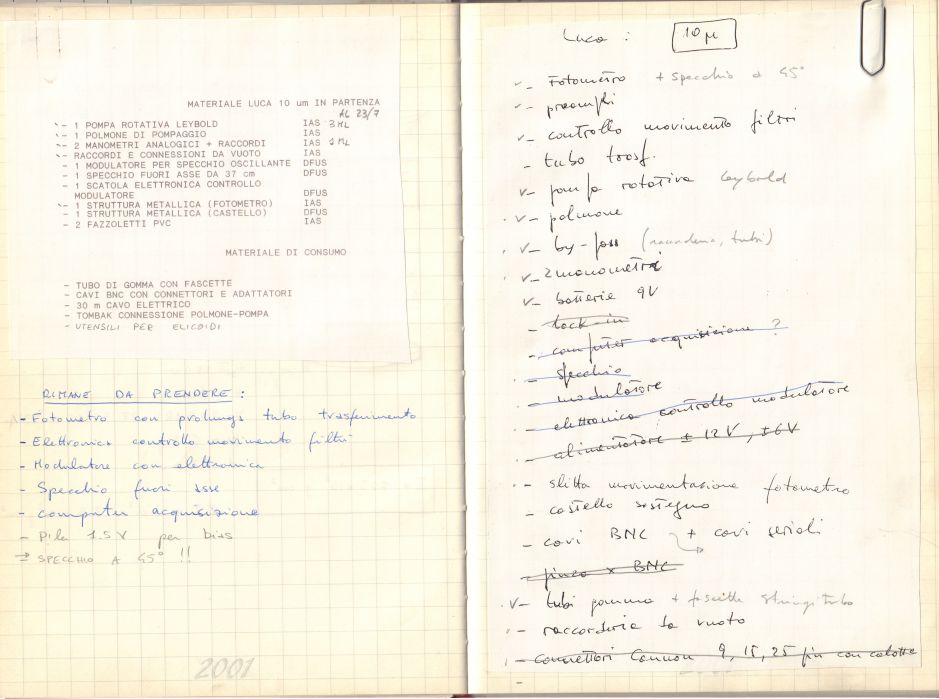 MATERIALE LUCA 10 um IN PARTENZA
AL 23/7
- 1 POMPA ROTATIVA LEYBOLD IAS 3 ML
- 1 POLMONE DI POMPAGGIO IAS
- 2 MANOMETRI ANALOGICI + RACCORDI IAS 1 ML
- RACCORDI E CONNESSIONI DA VUOTO IAS
- 1 MODULATORE PER SPECCHIO OSCILLANTE DFUS
- 1 SPECCHIO FUORI ASSE DA 37 cm DFUS
- 1 SCATOLA ELETTRONICA CONTROLLO
MODULATORE DFUS
- 1 STRUTTURA METALLICA (FOTOMETRO) IAS
- 1 STRUTTURA METALLICA (CASTELLO) DFUS
- 2 FAZZOLETTI PVC IAS
MATERIALE DI CONSUMO
- TUBO DI GOMMA CON FASCETTE
- CAVI BNC CON CONNETTORI E ADATTATORI
- 30 m CAVO ELETTRICO
- TOMBAK CONNESSIONE POLMONE-POMPA
- UTENSILI PER ELICOIDI
RIMANE DA PRENDERE :
- Fotometro con prolunga tubo trasferimento
- Elettronica controllo movimento filtri
- Modulatore con elettronica
- Specchio fuori asse
- computer acquisizione
- Pile 1.5 V per bias
SPECCHIO A 45° !!
2001
Luca : 10 μ
v- Fotometro + specchio a 45°
v- preampli
v- controllo movimento filtri
- tubo trasf.
v- pompa rotativa Leybold
v- polmone
v- by-pass (raccorderia, tubi)
v- 2 manometri
v- batterie 9V
- lock-in
- computer acquisizione ?
- specchio
- modulatore
- elettronica controllo modulatore
- alimentatore ± 12 V, ± 6 V
- slitta movimentazione fotometro
- castello sostegno
- cavi BNC + cavi seriali
- pinza x BNC
v- tubi gomma + fascette stringitubo
- raccorderia da vuoto
- connettori Cannon 9, 15, 25 pin con calotte